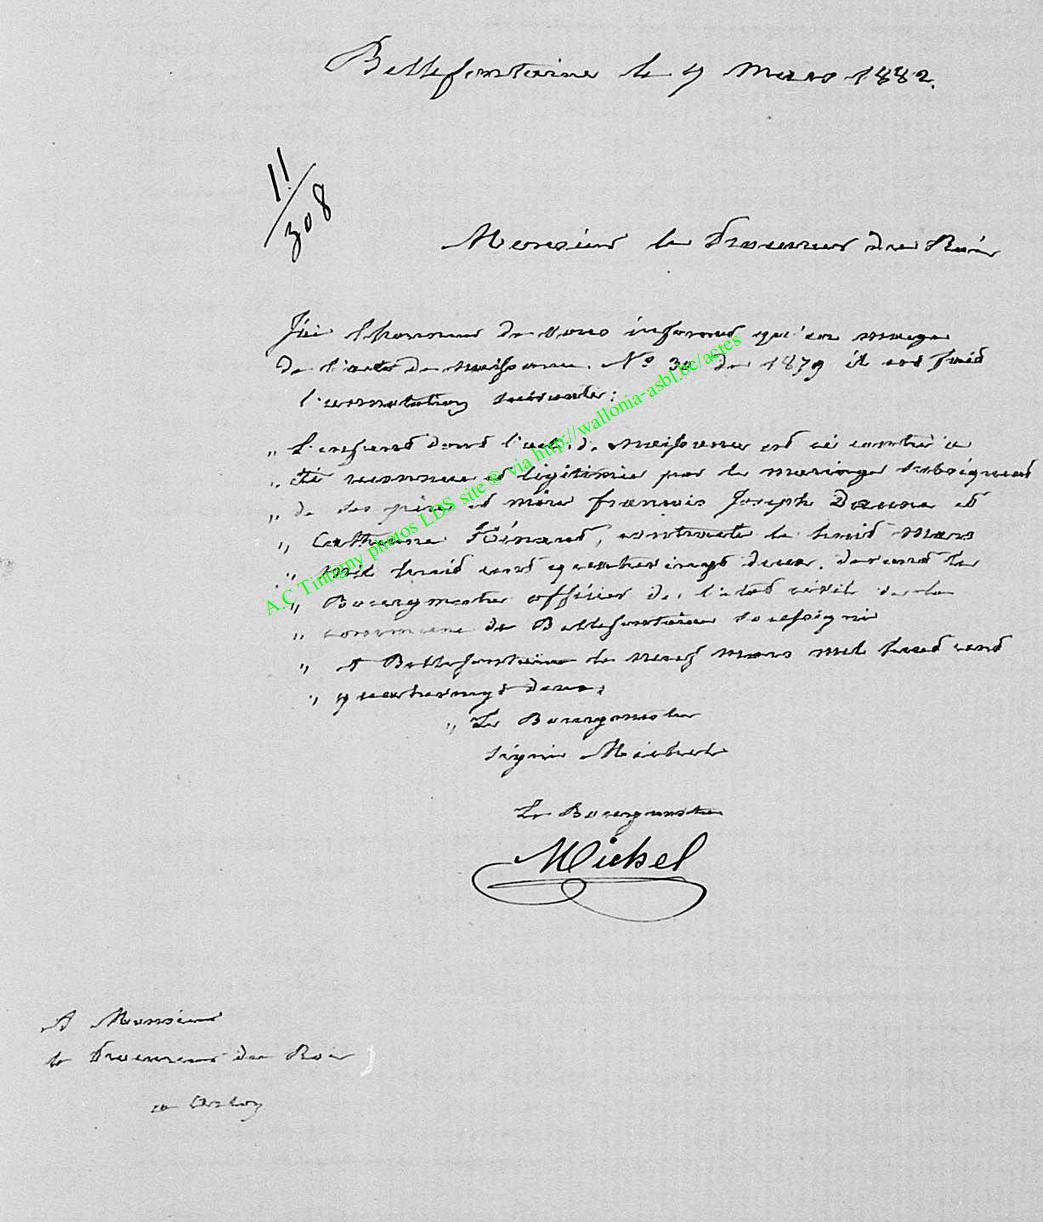 Bellefontaine le 9 Mars 1882.
11/308
Monsieur le Procureur du Roi
J'ai l'honneur de vous informer qu'en marge
de l'acte de naissance N° 30 de 1879 il est fait
l'annotation suivante:
„ L'enfant dont l'acte de naissance est ci contre a
„ été reconnu et légitimé par le mariage subséquent
„ de ses père et mère françois Joseph et
„ Catherine, contracté le huit Mars
„ mil huit cent quatre vingt deux, devant le
„ Bourgmestre officier de l'état civil de la
„ commune de Bellefontaine soussigné
„ A Bellefontaine le neuf mars mil huit cent
„ quatre vingt deux.
„ Le Bourgmestre
signé Michel
Le Bourgmestre
Michel
A Monsieur
le Procureur du Roi
a Arlon
A.C Tintigny photos LDS site ® via http://wallonia-asbl.be/actes